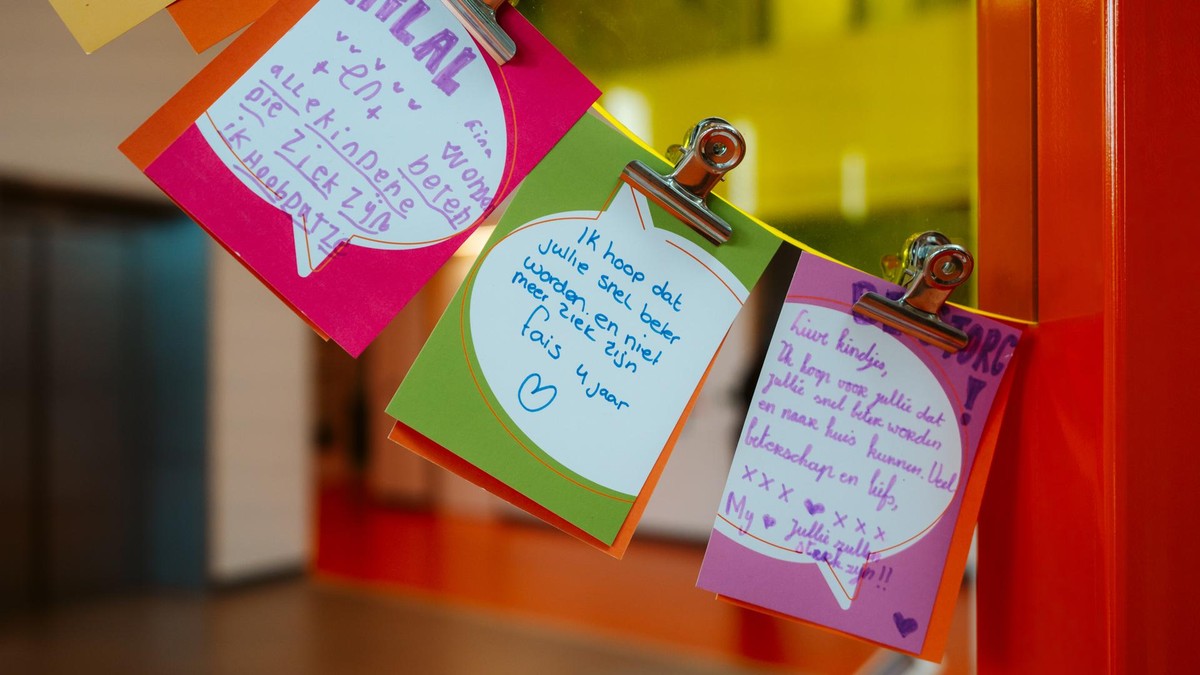 en
alle kindene
die zick zyn
beter
Ik hoop dat
jullie snel beter
worden en niet
meer ziek zijn
fais 4 jaar
Lieve kindjes,
Ik hoop voor jullie dat
jullie snel beter worden
en naar huis kunnen. Veel
beterschap en liefs,
xxx♥xxx
My ♥ jullie zullen
sterk zijn!!